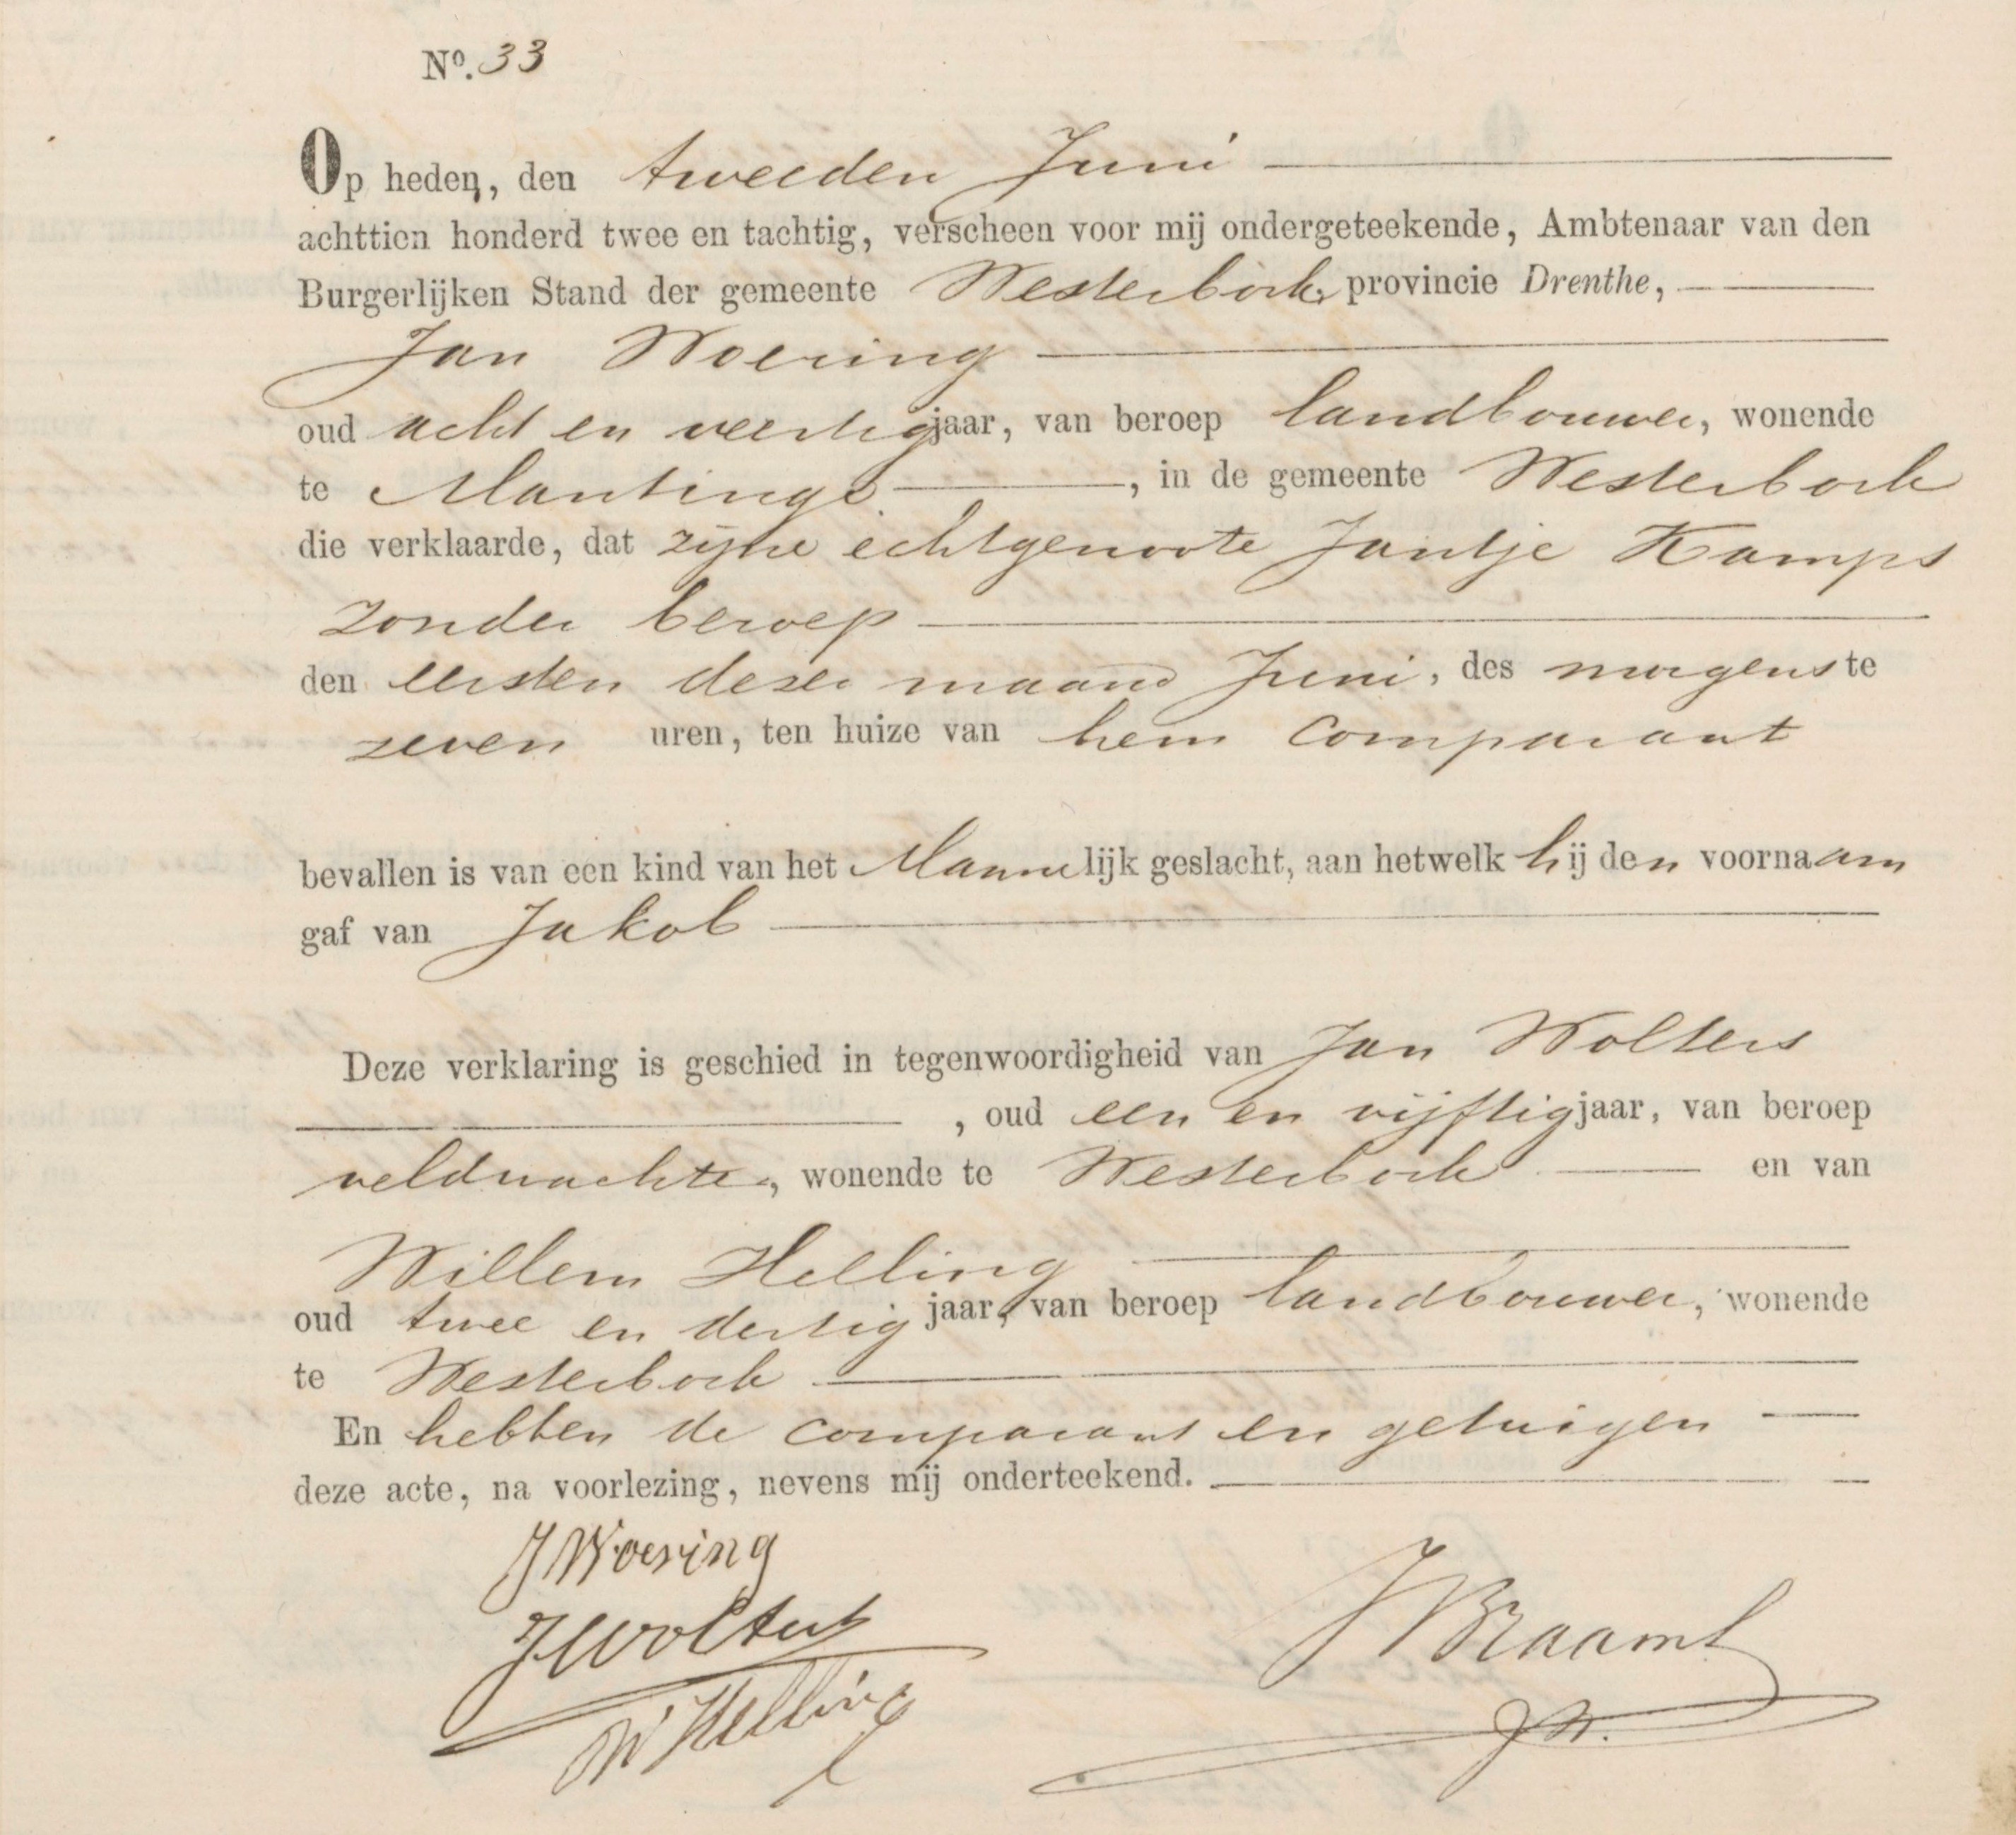 Nº. 33
Op heden, den tweeden Juni
achttien honderd twee en tachtig, verscheen voor mij ondergeteekende, Ambtenaar van den
Burgerlijken Stand der gemeente Westerbork, provincie Drenthe,
Jan Woering
oud acht en veertig jaar, van beroep landbouwer, wonende
te Mantinge, in de gemeente Westerbork
die verklaarde, dat zijne echtgenoote Jantje Kamps
zonder beroep
den eersten dezer maand Juni, des morgens te
zeven uren, ten huize van hem comparant
bevallen is van een kind van het Mannelijk geslacht, aan hetwelk hij den voornaam
gaf van Jakob
Deze verklaring is geschied in tegenwoordigheid van Jan Wolters
, oud een en vijftig jaar, van beroep
veldwachter, wonende te Westerbork en van
Willem Helling
oud twee en dertig jaar, van beroep landbouwer, wonende
te Westerbork
En hebben de comparant en getuigen
deze acte, na voorlezing, nevens mij onderteekend.
JWoering
JWolters
W Helling